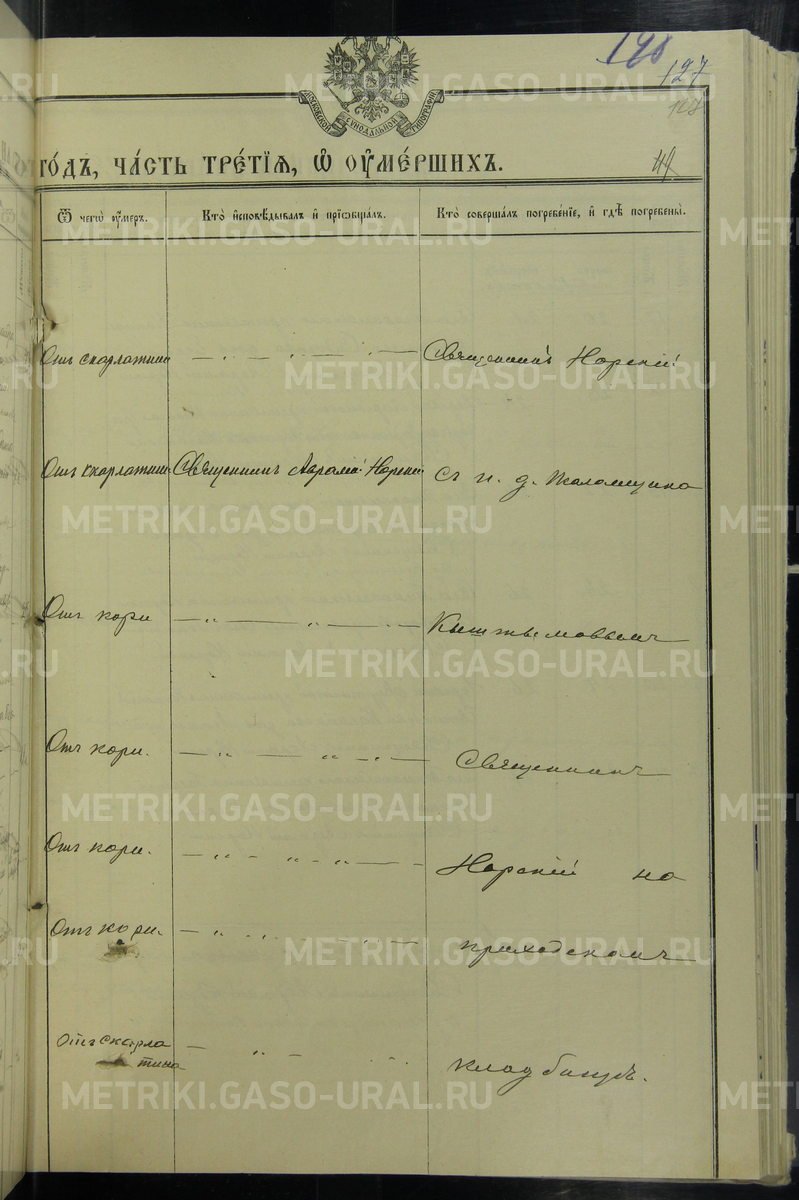 198
127
128
МОСКОВСКОЙ СѴНОДАЛЬНОЙ ТИПОГРАФІИ
ГО́ДЪ, ЧА́СТЬ ТРЕ́ТІѦ, Ѡ҆ ОУ҆МЕ́РШИХЪ.
Ѿ чегѡ̀ оу҆́меръ.
Кто̀ и҆сповѣ́дывалъ и҆ прїѡбща́лъ.
Кто̀ соверша́лъ погребе́нїе, и҆ гдѣ̀ погребены̀.
Отъ скарлатины
— „ — „ — „ —
Священникъ Норскій
Отъ скарлатины
Священникъ Аврамій Норскій
съ п. д.
Отъ кори
— „ — „ — „ —
Отъ кори.
— „ — „ — „ —
Священникъ
Отъ кори.
— „ — „ — „ —
Норскій на
Отъ кори.
— „ — „
приходскомъ
Отъ скарла
тина
— „ — „
кладбищѣ.
METRIKI.GASO-URAL.RU